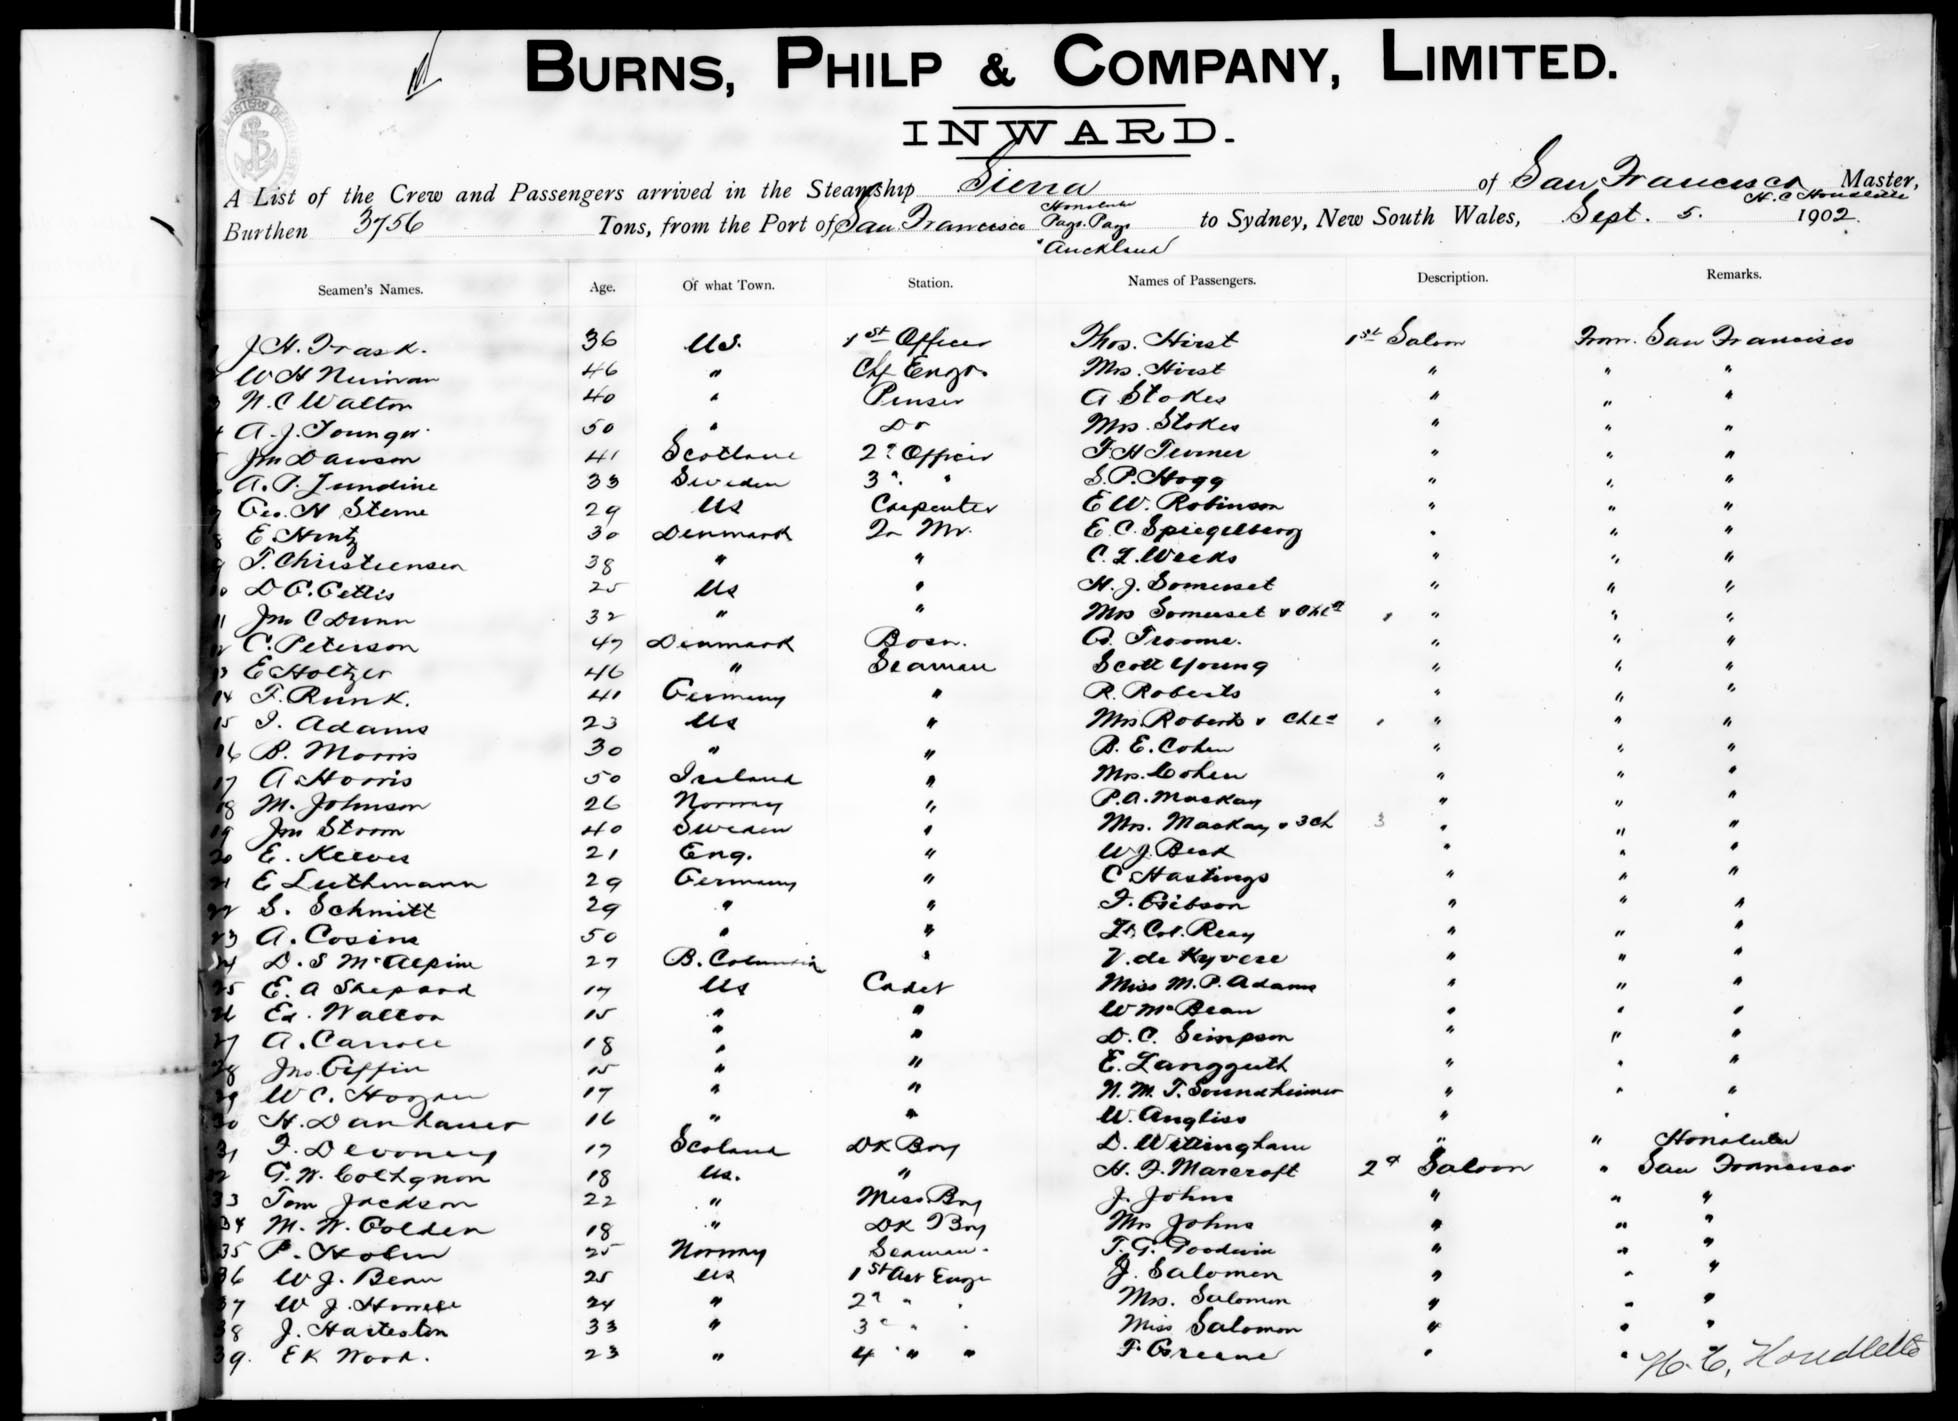 BURNS, PHILP & COMPANY, LIMITED.
INWARD.
A List of the Crew and Passengers arrived in the Steamship Sierra of San Francisco Master,
H. C. Houdlette
Burthen 3756 Tons, from the Port of San Francisco Honolulu Pago Pago & Auckland to Sydney, New South Wales, Sept. 5. 1902.
Seamen's Names. Age. Of what Town. Station. Names of Passengers. Description. Remarks.
1 J. H. Trask. 36 U.S. 1st Officer Thos. Hirst 1st Saloon From San Francisco
2 W H Neuman 46 " Chf Engr. Mrs. Hirst " " "
3 N. C Walton 40 " Purser A Stokes " " "
4 A. J. Younger 50 " Do Mrs. Stokes " " "
5 Jno Dawson 41 Scotland 2d Officer F. H Turner " " "
6 A. P. Lundine 33 Sweden 3d " S. P. Hogg " " "
7 Geo. H Sterne 29 US Carpenter E W. Robinson " " "
8 E. Hintz 30 Denmark Qr Mr. E. C. Spiegelberg " " "
9 T. Christiensen 38 " " C. L. Weeks " " "
10 D G. Gettis 25 US " H. J. Somerset " " "
11 Jno C Dunn 32 " " Mrs Somerset & Chld " " "
12 C. Peterson 47 Denmark Bosn. G. Troome. " " "
13 E Holtzer 46 " Seaman Scott Young " " "
14 F. Runk. 41 Germany " R. Roberts " " "
15 J. Adams 23 US " Mrs. Roberts & Chld " " "
16 B. Morris 30 " " B. E. Cohen " " "
17 A. Horris 50 Ireland " Mrs. Cohen " " "
18 M. Johnson 26 Norway " P. A. Mackay " " "
19 Jno Strom 40 Sweden " Mrs. Mackay & 3 Ch 3 " " "
20 E. Reeves 21 Eng. " W J. Beak " " "
21 E Luthmann 29 Germany " C. Hastings " " "
22 S. Schmitt 29 " " F. Gibson " " "
23 A. Cosins 50 " " Lt. Col. Reay " " "
24 D. S McAlpine 27 B. Columbia " V. de Kyvere " " "
25 E. A Shepard 17 US Cadet Miss M. P. Adams " " "
26 Ed. Walton 15 " " W McBean " " "
27 A. Carroll 18 " " D. C. Simpson " " "
28 Jno. Giffin 15 " " E. Langguth " " "
29 W C. Hogan 17 " " N. M. T. Soundheimer " " "
30 H. Danhauser 16 " " W. Angliss " "
31 F. Devoney 17 Scoland DK Boy D. Willingham " " Honolulu
32 G. W. Colhgnon 18 US. " H. F. Marcroft 2d Saloon " San Francisco
33 Tom Jackson 22 " Mess Boy J. Johns " " "
34 M. W. Golden 18 " DK Boy Mrs Johns " " "
35 P. Holm 25 Norway Seaman. T. G. Goodwin " " "
36 W J. Bean 25 US 1st Ast Engr J. Salomon " " "
37 W J. Howell 24 " 2d " " Mrs. Salomon " " "
38 J. Harleston 33 " 3d " " Miss Salomon " " "
39. E K Wood. 23 " 4 " " F. Greene " "
H. C. Houdlette